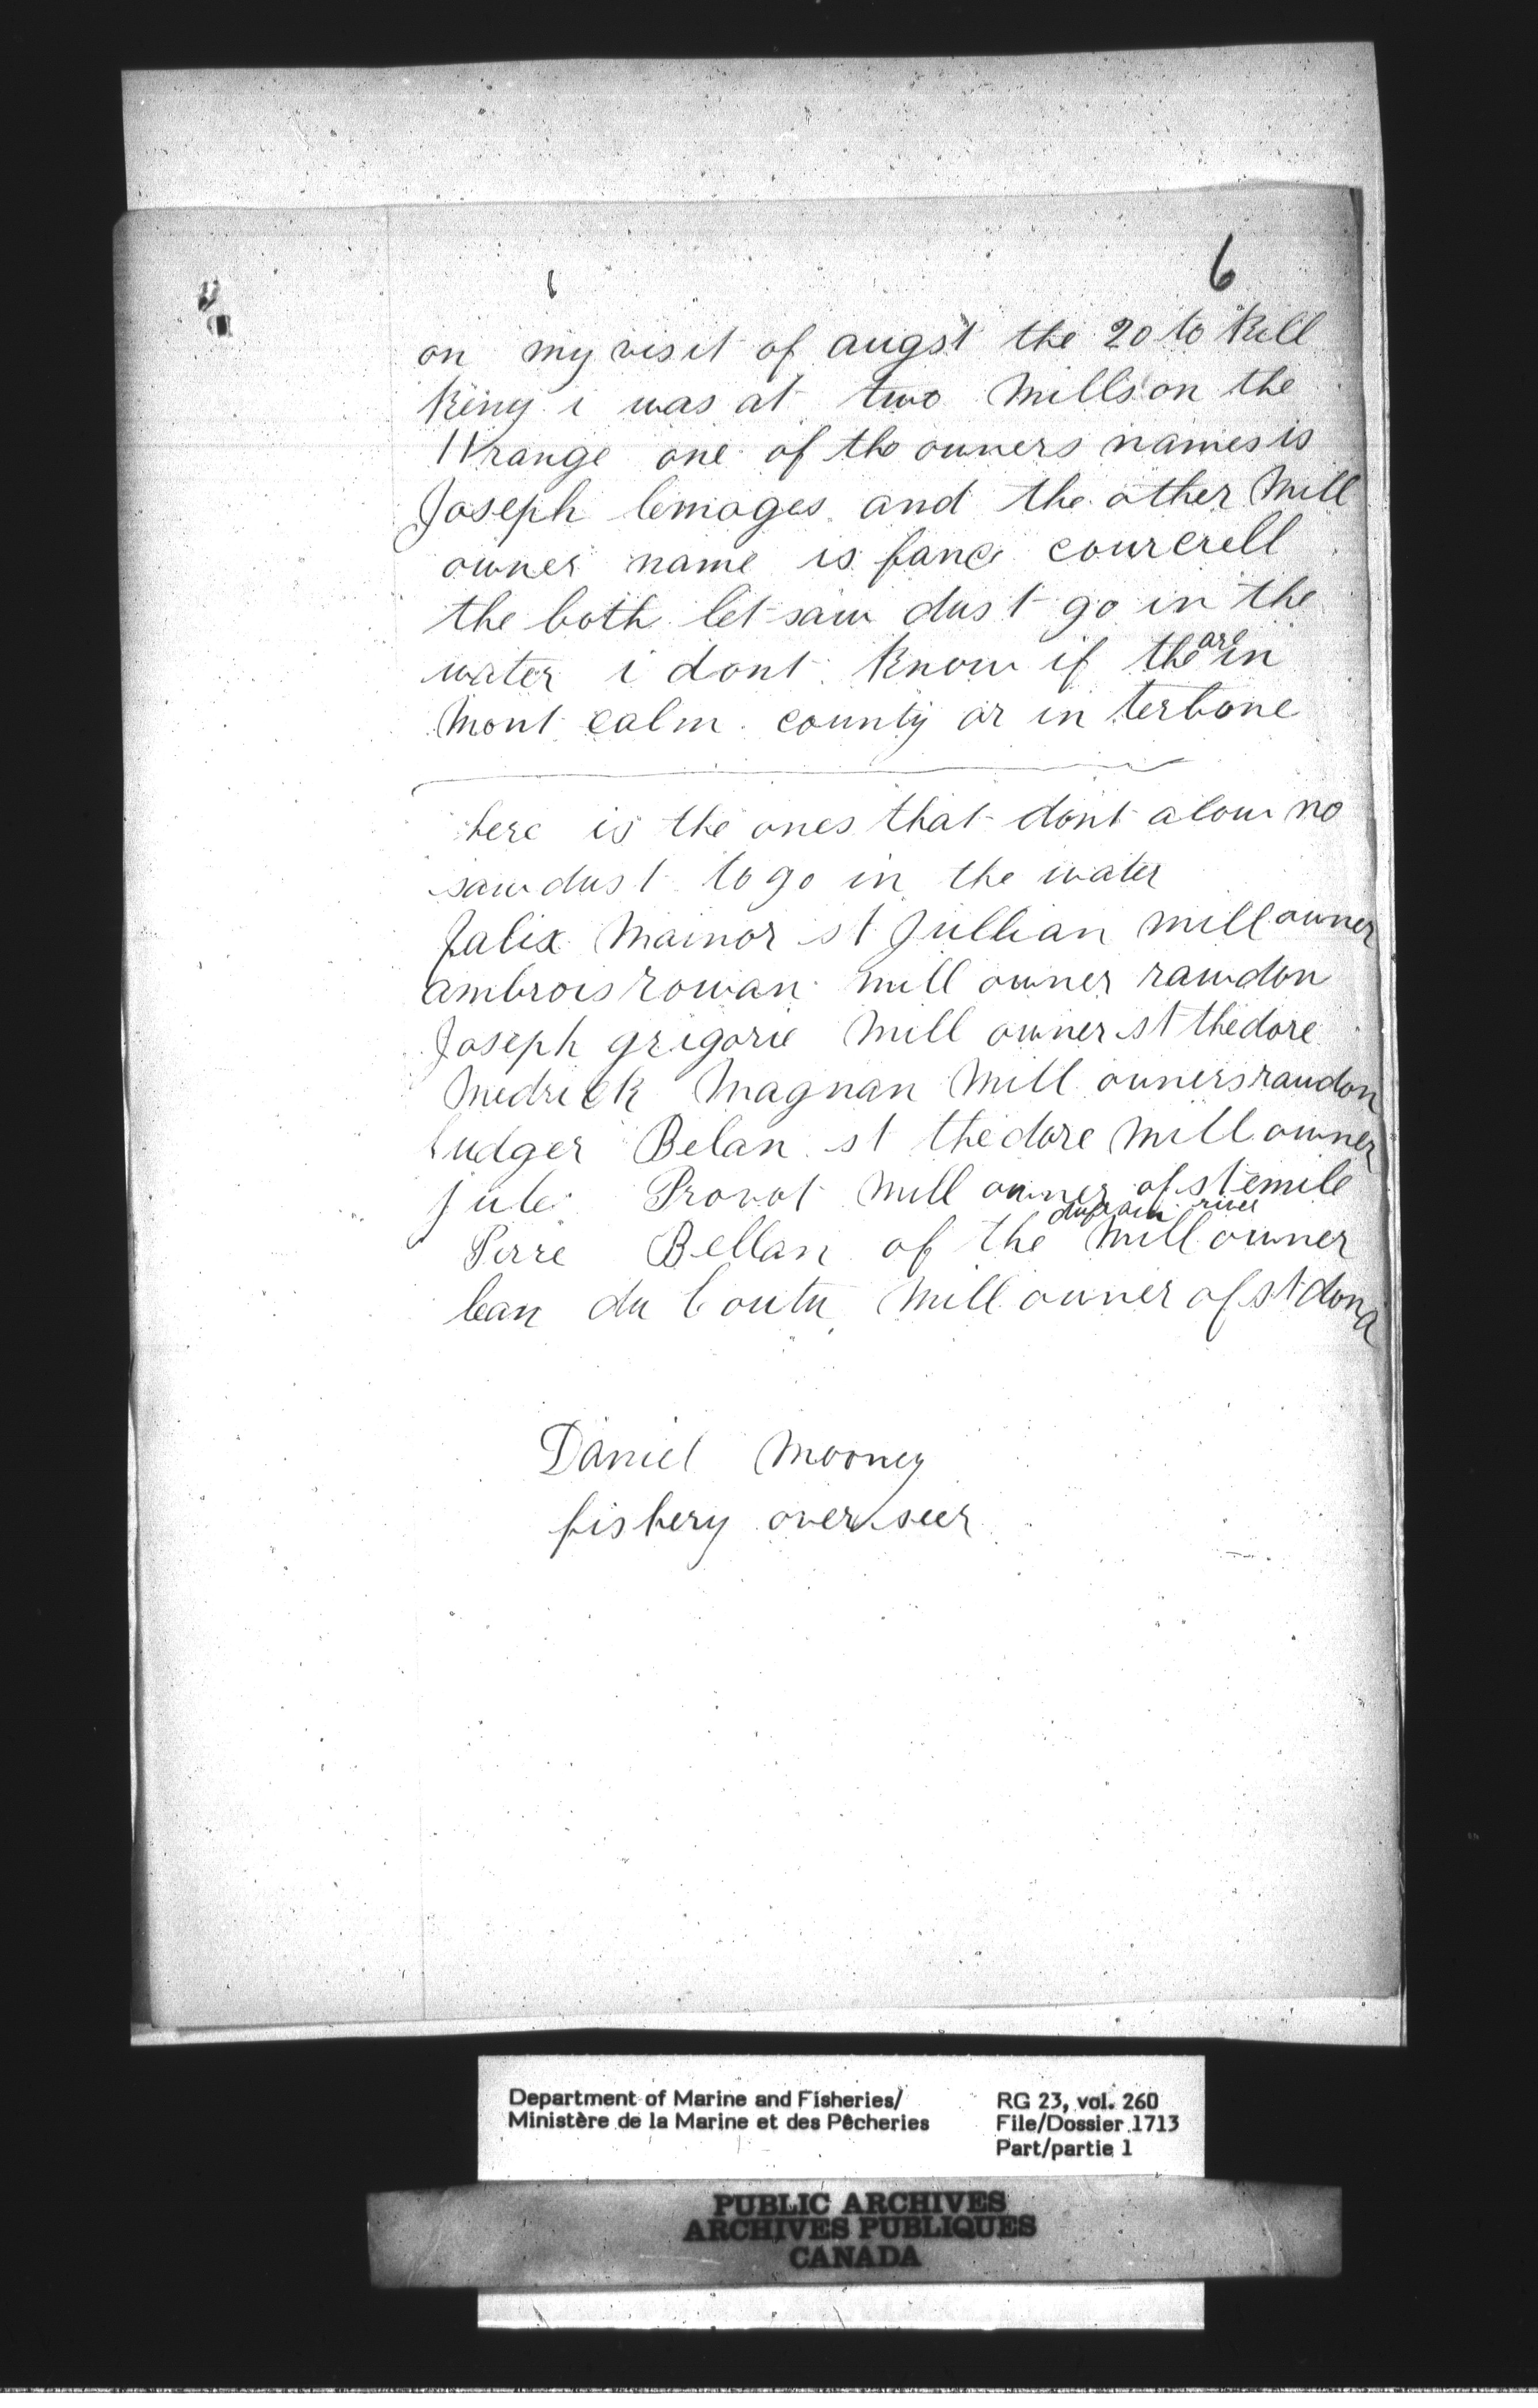 6
on my visit of augst the 20 to Kill
Keny i was at two Mills on the
11 range one of the owners names is
Joseph limoges and the other Mill
owner name is
the both let saw dust go in the
water i dont Know if the are in
Mont calm county or in terbone
here is the ones that dont alow no
sawdust to go in the water
falix Mainor st Jullian mill owner
ambrois rowan mill owner rawdon
Joseph grigorie Mill owner st thedore
Medrick Magnan Mill owners raudon
ludger Belan st thedore Mill owner
Jule Provot Mill owner of st emile
river
Pirre Bellan of the Mill owner
Mill owner of st dona
Daniel Mooney
fishery overseer
Department of Marine and Fisheries/
Ministère de la Marine et des Pêcheries
RG 23, vol. 260
File/Dossier 1713
Part/partie 1
PUBLIC ARCHIVES
ARCHIVES PUBLIQUES
CANADA